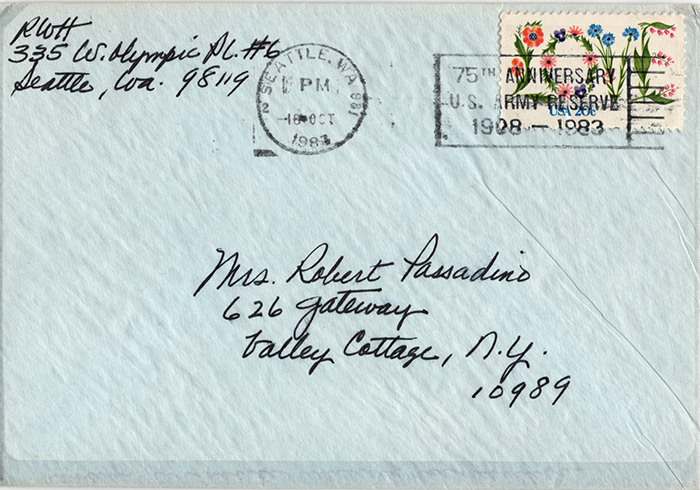 RWH
335 W. Olympic Pl. #6
Seattle, Wa. 98119
SEATTLE, WA 981
PM
16 OCT
1983
75TH ANNIVERSARY
U.S. ARMY RESERVE
1908 - 1983
USA 20c
Mrs. Robert Passadino
626 Gateway
Valley Cottage, N.Y.
10989